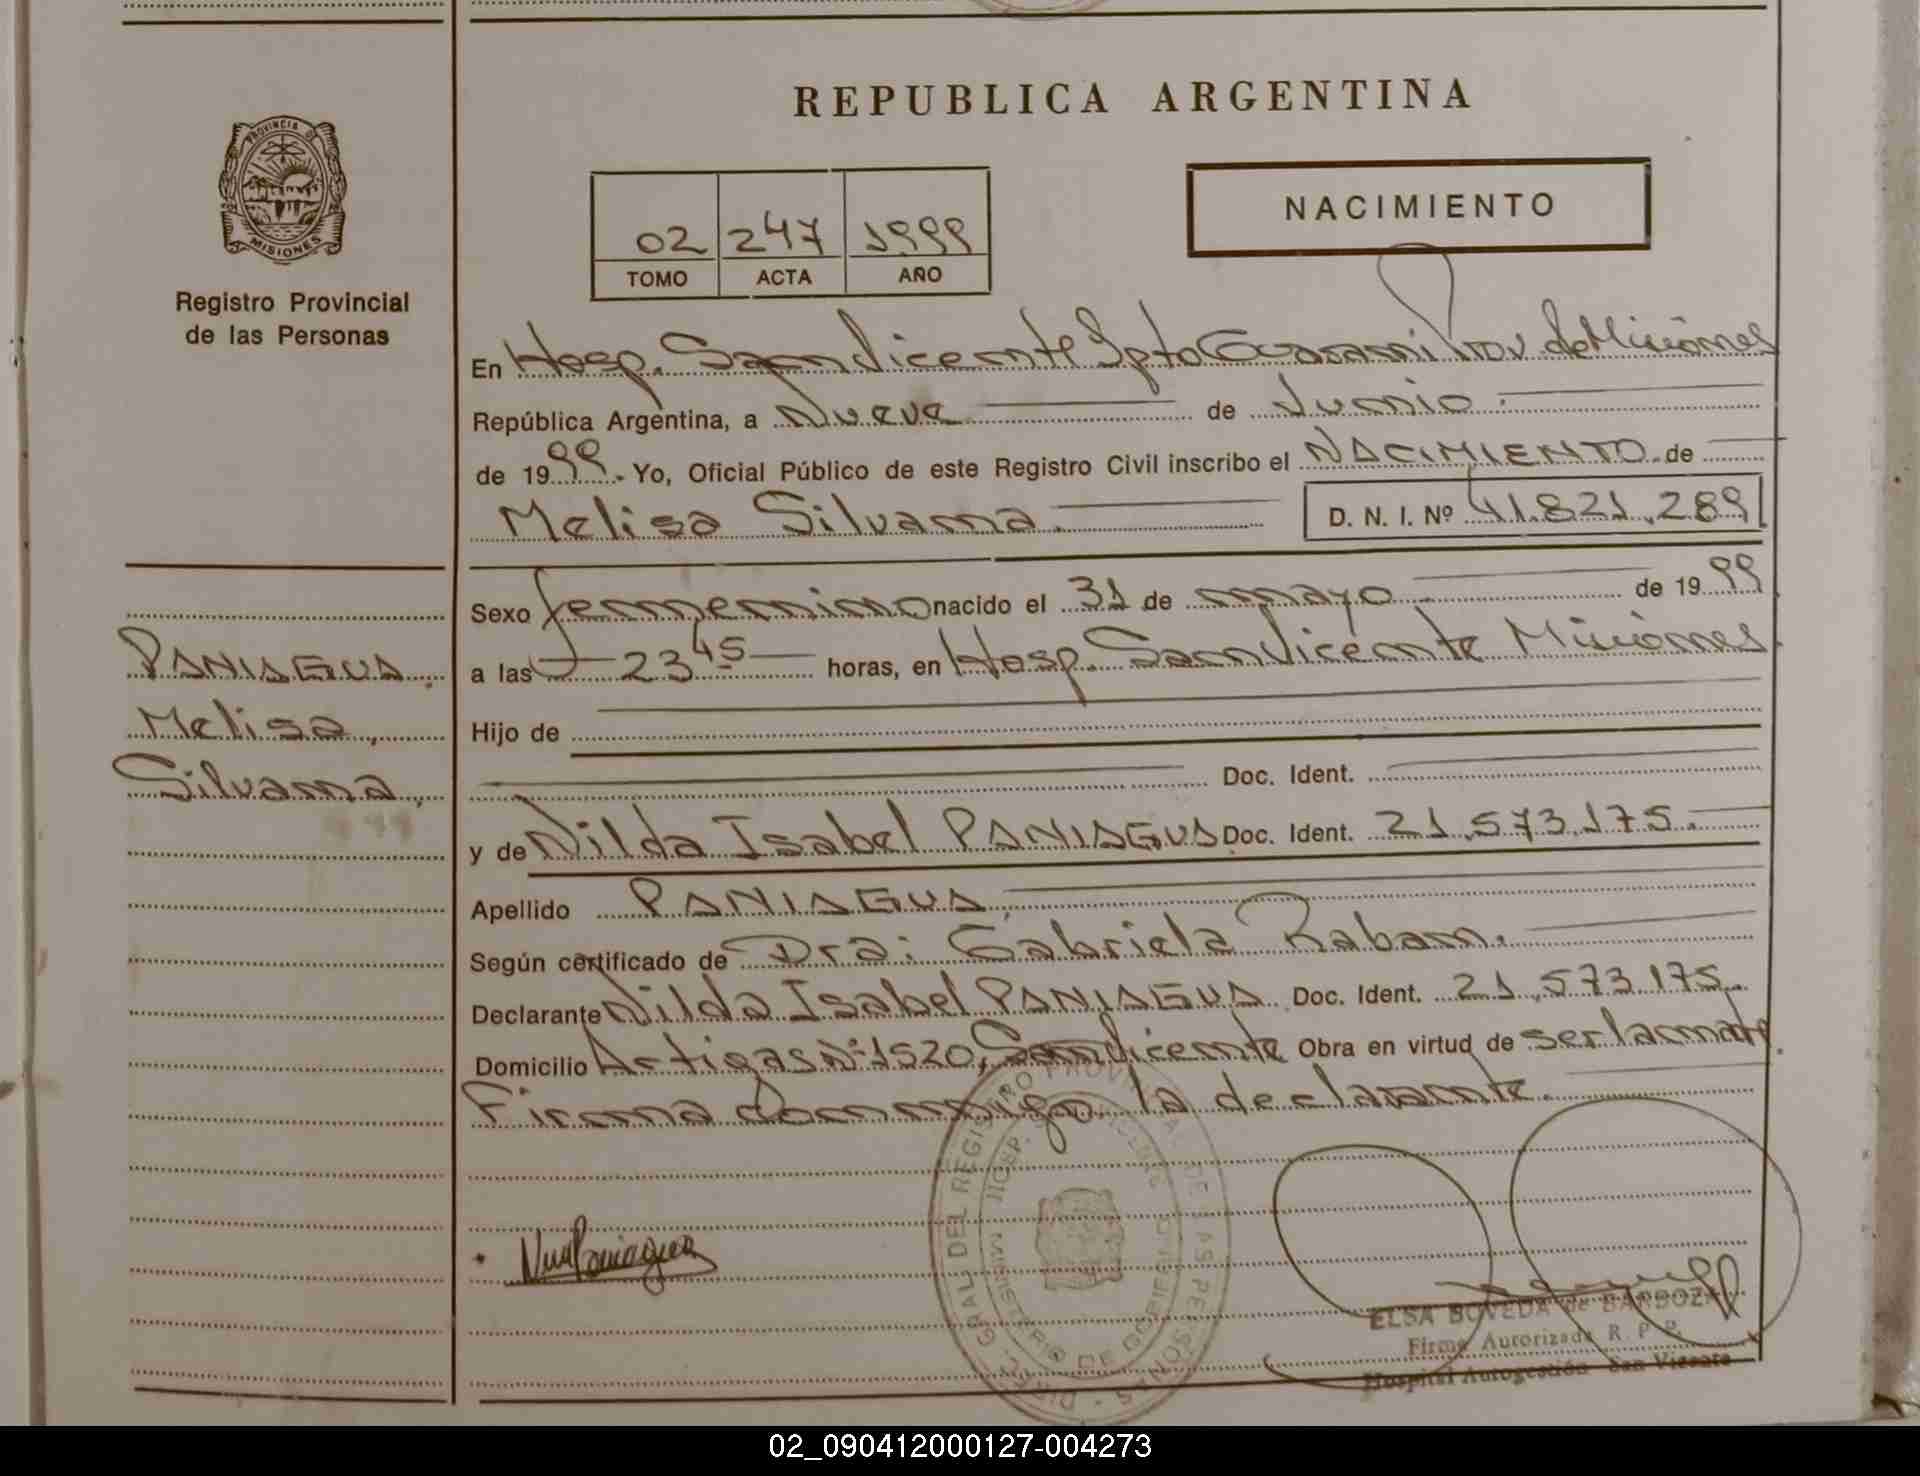 REPUBLICA ARGENTINA
PROVINCIA DE
MISIONES
Registro Provincial
de las Personas
02 247 1999
TOMO ACTA AÑO
NACIMIENTO
En Hosp. San Vicente Dpto Guaraní Prov. de Misiones
República Argentina, a Nueve de Junio.
de 1999. Yo, Oficial Público de este Registro Civil inscribo el NACIMIENTO de
Melisa Silvana. D. N. I. Nº 41.821.289
Sexo femenino nacido el 31 de mayo de 1999
a las 23 45 horas, en Hosp. San Vicente Misiones.
Hijo de
Doc. Ident.
y de Nilda Isabel PANIAGUA Doc. Ident. 21.573.175.
Apellido PANIAGUA.
Según certificado de Dra: Gabriela Raban.
Declarante Nilda Isabel PANIAGUA Doc. Ident. 21.573.175.
Domicilio Artigas Nº 1520, San Vicente Obra en virtud de ser la madre.
Firma conmigo la declarante.
PANIAGUA.
Melisa,
Silvana,
DIREC. GRAL DEL REGISTRO PROVINCIAL DE LAS PERSONAS
MINISTERIO DE GOBIERNO
ELSA BOVEDA de BARBOZA
Firma Autorizada R. P. P.
Hospital Autogestión San Vicente
02_090412000127-004273